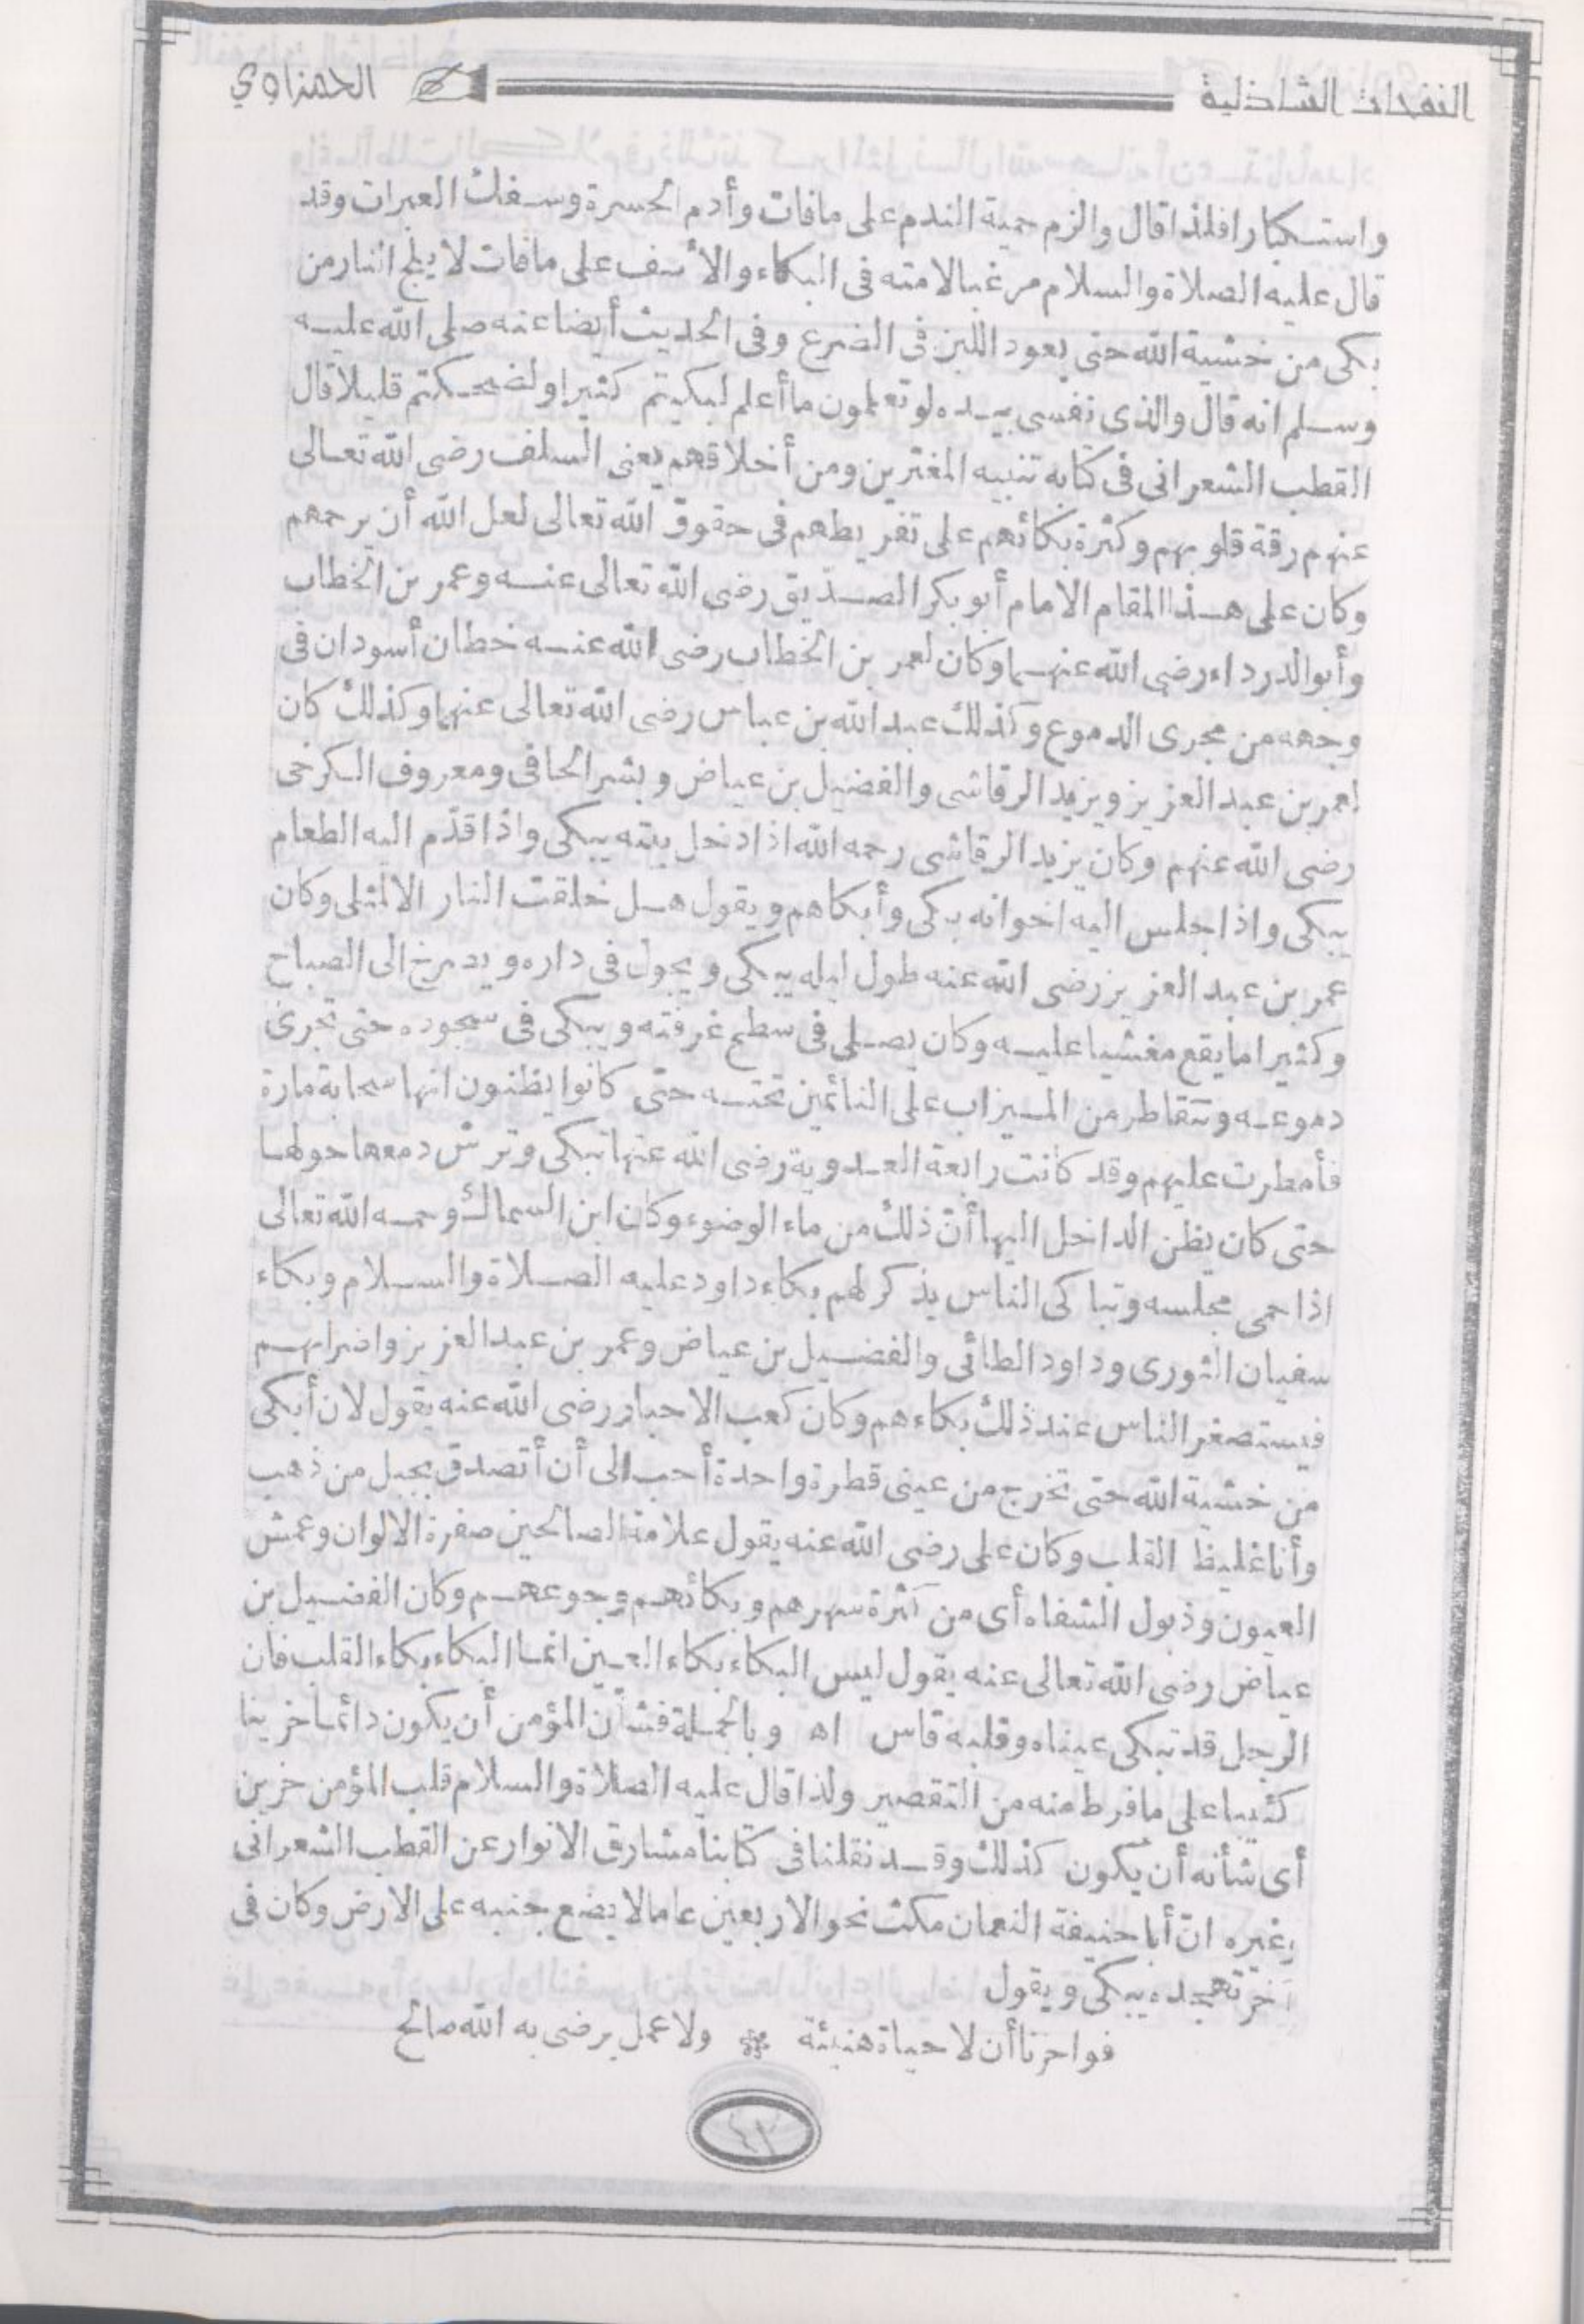 النفحات الشاذلية الحمزاوي
واستكبارا فلذا قال والزم حمية الندم على مافات وأدم الحسرة وسفك العبرات وقد
قال عليه الصلاة والسلام مرغبا لامته فى البكاء والأسف على مافات لا يلج النار من
بكى من خشية الله حتى يعود اللبن فى الضرع وفى الحديث أيضا عنه صلى الله عليه
وسلم انه قال والذى نفسى بيده لو تعلمون ما أعلم لبكيتم كثيرا ولضحكتم قليلا قال
القطب الشعرانى فى كتابه تنبيه المغترين ومن أخلاقهم يعنى السلف رضى الله تعالى
عنهم رقة قلوبهم وكثرة بكائهم على تفريطهم فى حقوق الله تعالى لعل الله أن يرحمهم
وكان على هذا المقام الامام أبو بكر الصديق رضى الله تعالى عنه وعمر بن الخطاب
وأبو الدرداء رضى الله عنهما وكان لعمر بن الخطاب رضى الله عنه خطان أسودان فى
وجهه من مجرى الدموع وكذلك عبد الله بن عباس رضى الله تعالى عنهما وكذلك كان
لعمر بن عبد العزيز ويزيد الرقاشى والفضيل بن عياض وبشر الحافى ومعروف الكرخى
رضى الله عنهم وكان يزيد الرقاشى رحمه الله اذا دخل بيته يبكى واذا قدّم اليه الطعام
يبكى واذا جلس اليه اخوانه بكى وأبكاهم ويقول هل خلقت النار الا لمثلى وكان
عمر بن عبد العزيز رضى الله عنه طول ليله يبكى ويجول فى داره ويصرخ الى الصباح
وكثيرا ما يقع مغشيا عليه وكان يصلى فى سطح غرفته ويبكى فى سجوده حتى تجرى
دموعه وتتقاطر من الميزاب على النائمين تحته حتى كانوا يظنون انها سحابة مارة
فأمطرت عليهم وقد كانت رابعة العدوية رضى الله عنها تبكى وترش دمعها حولها
حتى كان يظن الداخل اليها أنّ ذلك من ماء الوضوء وكان ابن السماك رحمه الله تعالى
اذا حمى مجلسه وتباكى الناس يذكر لهم بكاء داود عليه الصلاة والسلام وبكاء
سفيان الثورى وداود الطائى والفضيل بن عياض وعمر بن عبد العزيز واضرابهم
فيستصغر الناس عند ذلك بكاءهم وكان كعب الاحبار رضى الله عنه يقول لان أبكى
من خشية الله حتى تخرج من عينى قطرة واحدة أحب الى أن أتصدق بجبل من ذهب
وأنا غليظ القلب وكان على رضى الله عنه يقول علامة الصالحين صفرة الالوان وعمش
العيون وذبول الشفاه أى من كثرة سهرهم وبكائهم وجوعهم وكان الفضيل بن
عياض رضى الله تعالى عنه يقول ليس البكاء بكاء العين انما البكاء بكاء القلب فان
الرجل قد تبكى عيناه وقلبه قاس اه وبالجملة فشأن المؤمن أن يكون دائما حزينا
كئيبا على ما فرط منه من التقصير ولذا قال عليه الصلاة والسلام قلب المؤمن حزين
أى شأنه أن يكون كذلك وقد نقلنا فى كتابنا مشارق الانوار عن القطب الشعرانى
وغيره انّ أبا حنيفة النعمان مكث نحو الاربعين عاما لا يضع جنبه على الارض وكان فى
آخر تهجده يبكى ويقول
فواحزنا أن لا حياة هنيئة * ولا عمل يرضى به الله صالح